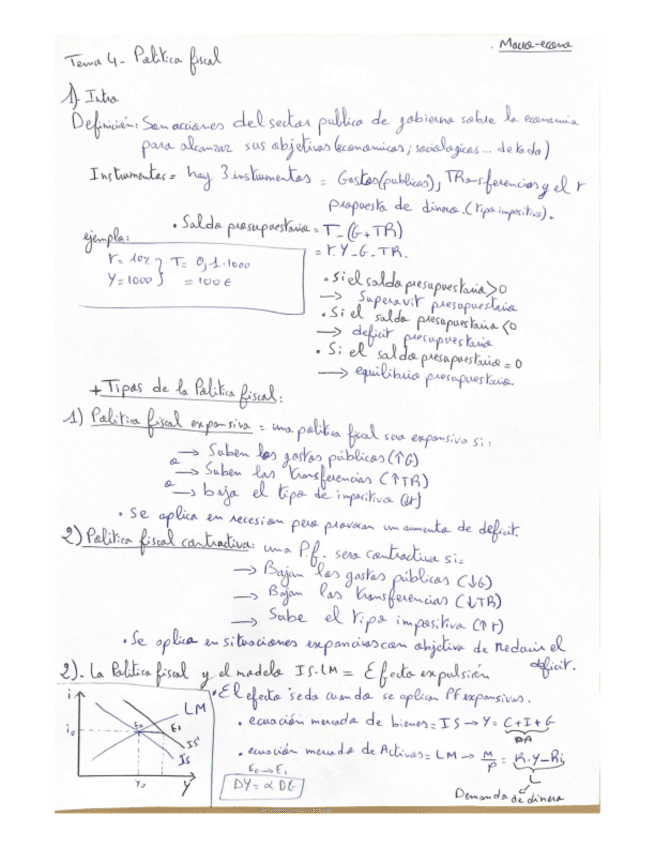 . Macro-econo
Tema 4_ Politica fiscal
1). Intro
Definición: Son acciones del sector publico de gobierno sobre la economia
para alcanzar sus objetivos (economicos; sociologicos... de todo)
Instrumentos = hay 3 instrumentos = Gastos (publicos), TRansferencias y el r
propuesto de dinero. (tipo impositivo).
• Saldo presupuestario = T_ (G+TR)
= r.Y_G_TR.
ejemplo:
r = 10% } T = 0,1.1000
Y = 1000 } = 100€
• Si el saldo presupuestario > 0
→ Superavit presupuestario
• Si el saldo presupuestario < 0
→ deficit presupuestario
• Si el saldo presupuestario = 0
→ equilibrio presupuestario
+ Tipos de la Politica fiscal:
1) Politica fiscal expansiva = una politica fiscal sera expansiva si:
→ Suben los gastos públicos (↑G)
o → Suben las transferencias (↑TR)
o → baja el tipo de impositivo (↓r)
• Se aplica en recesion pero provocan un aumento de deficit.
2) Politica fiscal contractiva: una P.f. sera contractiva si=
→ Bajan los gastos públicos (↓G)
→ Bajan las transferencias (↓TR)
→ Sube el tipo impositivo (↑r)
• Se aplica en situaciones expancivas con objetivo de reducir el
deficit.
2)_ La Politica fiscal y el modelo IS-LM = Efecto expulsión
• El efecto se da cuando se aplican PF expansivas.
• ecuación mercado de bienes = IS → Y = C+I+G
DA
• ecuación mercado de Activos = LM → M/P = K.Y_Ri,
L
Demanda de dinero
E₀ → E₁
DY = α DG
i
LM
i₀
E₀
E₁
IS'
IS
Y₀
Y